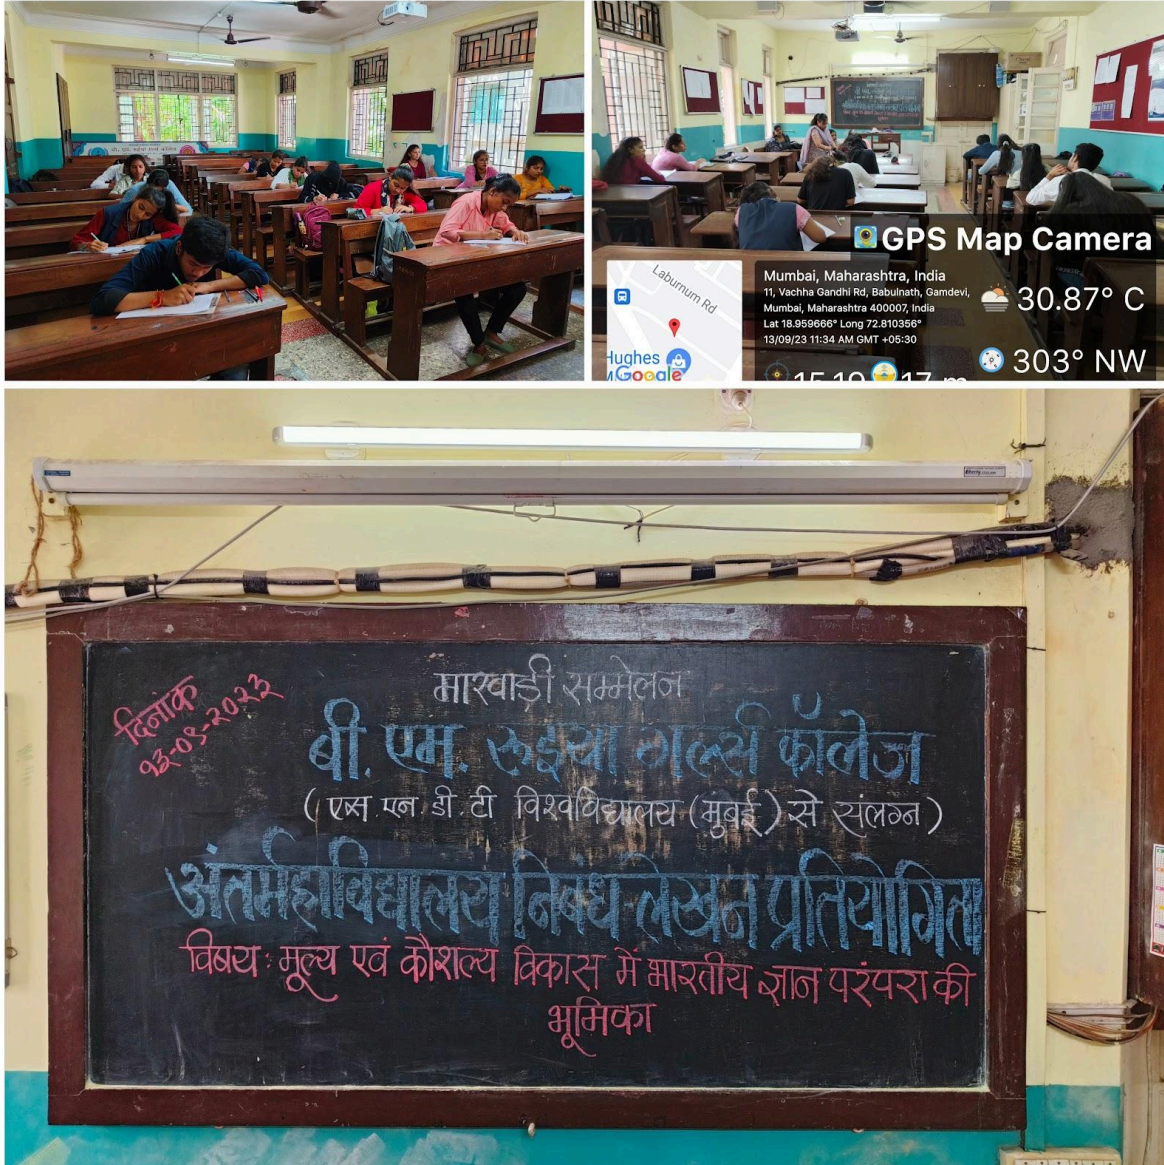 GPS Map Camera
Laburnum Rd
Hughes
Google
Mumbai, Maharashtra, India
11, Vachha Gandhi Rd, Babulnath, Gamdevi,
Mumbai, Maharashtra 400007, India
Lat 18.959666° Long 72.810356°
13/09/23 11:34 AM GMT +05:30
30.87° C
303° NW
दिनांक
१३-०९-२०२३
मारवाड़ी सम्मेलन
बी. एम. रुइया गर्ल्स कॉलेज
( एस. एन. डी. टी विश्वविद्यालय (मुंबई) से संलग्न )
अंतर्महाविद्यालय निबंध लेखन प्रतियोगिता
विषय : मूल्य एवं कौशल्य विकास में भारतीय ज्ञान परंपरा की
भूमिका